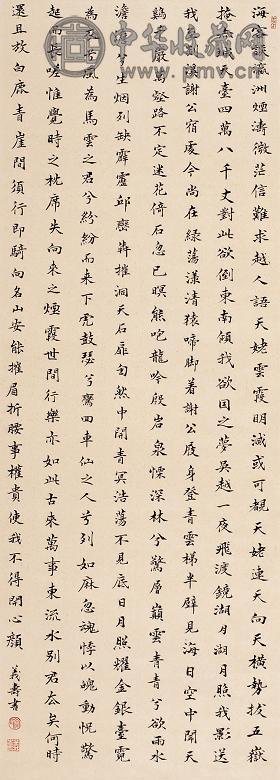 中华收藏网
www.pmv.cn
海客談瀛洲煙濤微茫信難求越人語天姥雲霞明滅或可覩天姥連天向天橫勢拔五嶽
掩赤城天臺四萬八千丈對此欲倒東南傾我欲因之夢吳越一夜飛渡鏡湖月湖月照我影送
我至剡溪謝公宿處今尚在綠蕩漾清猿啼脚着謝公屐身登青雲梯半壁見海日空中聞天
鷄千巖萬壑路不定迷花倚石忽已暝熊咆龍吟殷岩泉慄深林兮驚層巔雲青青兮欲雨水
澹澹兮生烟列缺霹靂邱巒崩摧洞天石扉訇然中開青冥浩蕩不見底日月照耀金銀臺霓
為衣兮風為馬雲之君兮紛紛而来下虎鼓瑟兮鸞回車仙之人兮列如麻忽魂悸以魄動怳驚
起而長嗟惟覺時之枕席失向來之煙霞世間行樂亦如此古來萬事東流水別君去矣何時
還且放白鹿青崖間須行即騎向名山安能摧眉折腰事權貴使我不得開心顏 義壽書